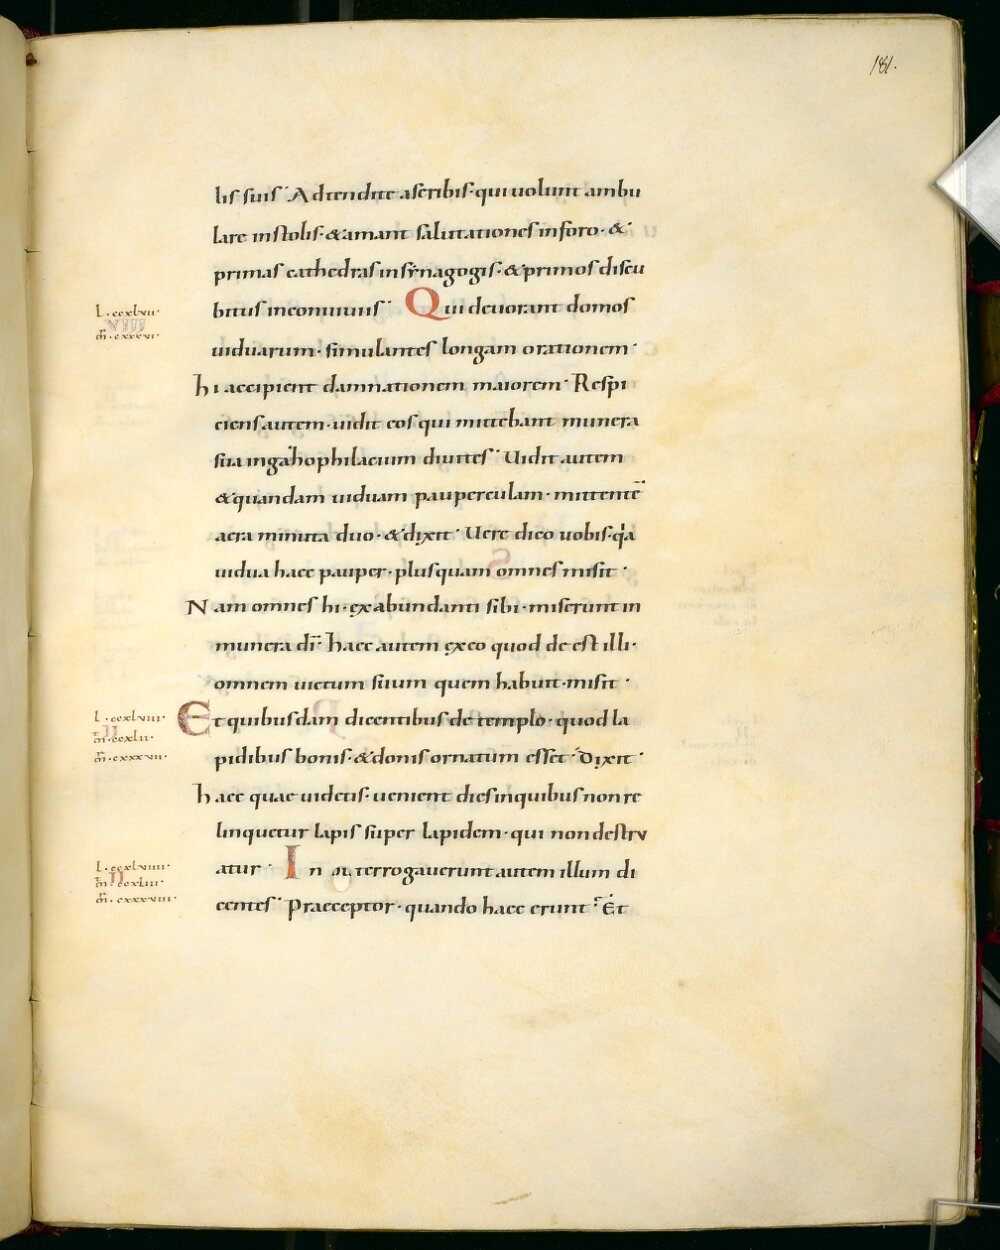 181.
lis suis · Adtendite ascribis · qui uolunt ambu
lare instolis · & amant salutationes inforo · &
primas cathedras insynagogis · & primos discu
bitus inconuiuiis · Qui deuorant domos
uiduarum · simulantes longam orationem ·
hi accipient damnationem maiorem · Respi
ciens autem · uidit eos qui mittebant munera
sua ingazophilacium diuites · Uidit autem
& quandam uiduam pauperculam · mittentē
aera minuta duo · & dixit · Uere dico uobis · qa
uidua haec pauper · plusquam omnes misit ·
Nam omnes hi · exabundanti sibi · miserunt in
munera dī · haec autem exeo quod deest illi ·
omnem uictum suum quem habuit · misit ·
Et quibusdam dicentibus de templo · quod la
pidibus bonis · & donis ornatum esset · Dixit ·
haec quae uidetis · uenient dies inquibus non re
linquetur lapis super lapidem · qui non destru
atur · In terrogauerunt autem illum di
centes · Praeceptor · quando haec erunt · Et
l · ccxlvii ·
VIII
m · cxxxvi ·
l · ccxlviii ·
II
m · ccxlii ·
m · cxxxvii ·
l · ccxlviiii ·
II
m · ccxliii ·
m · cxxxviii ·